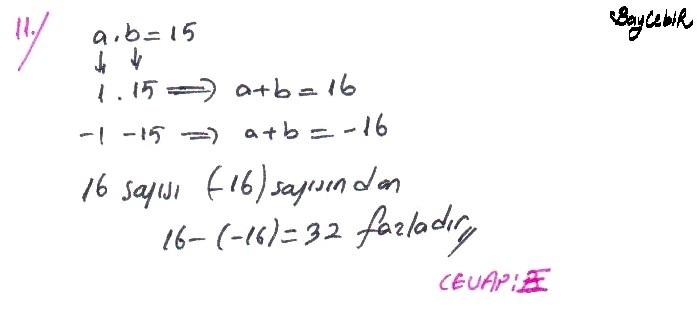 11./
BayCebiR
a.b=15
↓ ↓
1 . 15 ⟹ a+b=16
-1 -15 ⟹ a+b=-16
16 sayısı (-16) sayısından
16-(-16)=32 fazladır,,
CEVAP: E